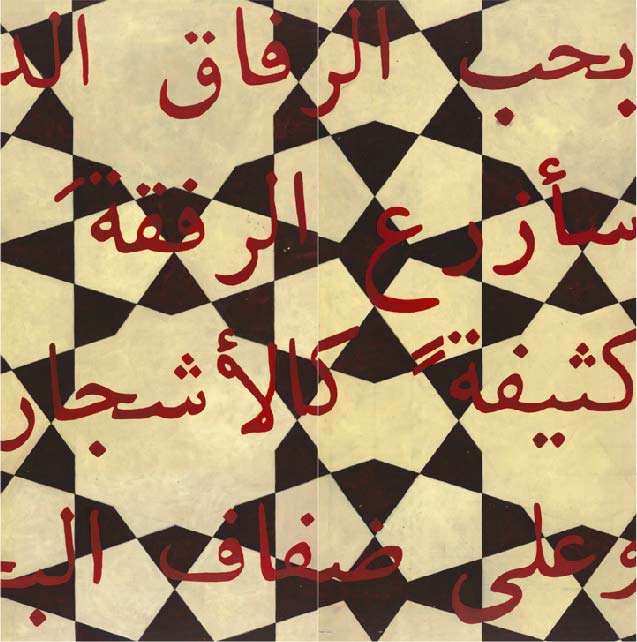 بحب الرفاق
سأزرع الرفقةَ
كثيفةً كالأشجار
وعلى ضفاف